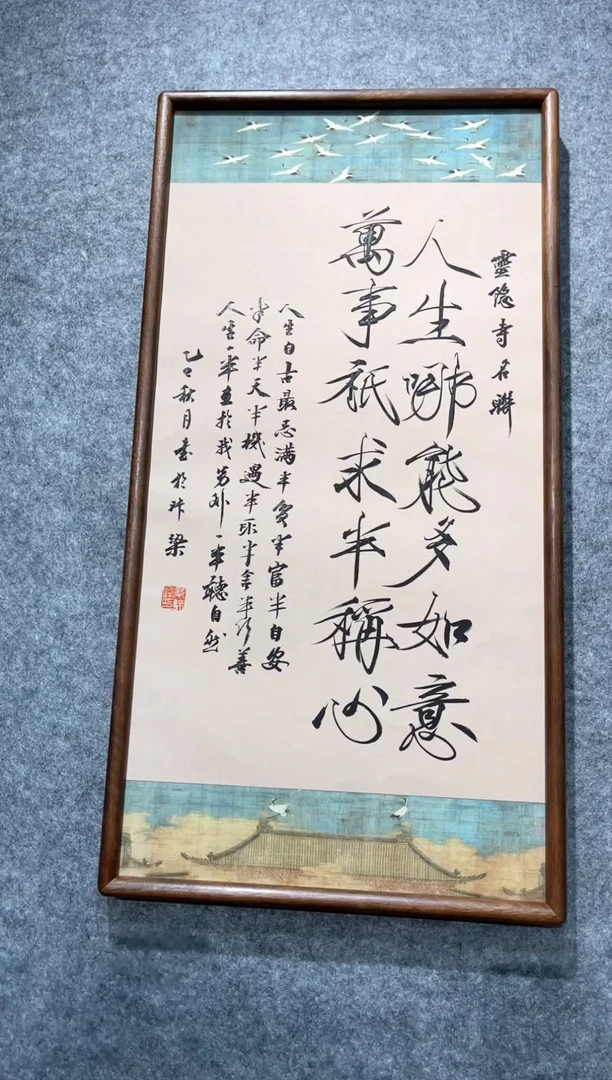 靈隐寺名聯
人生哪能多如意
萬事祇求半稱心
人生自古最忌满半貧半富半自安
半命半天半機遇半取半舍半行善
人生一半在於我另外一半聽自然
乙巳秋月書於汴梁